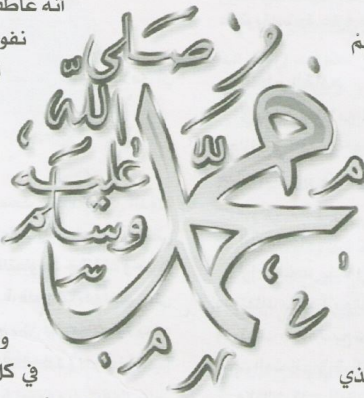 أنه عاطف
نفو
محمد
صلى
الله
عليه
وسلم
و
في كل
ذي